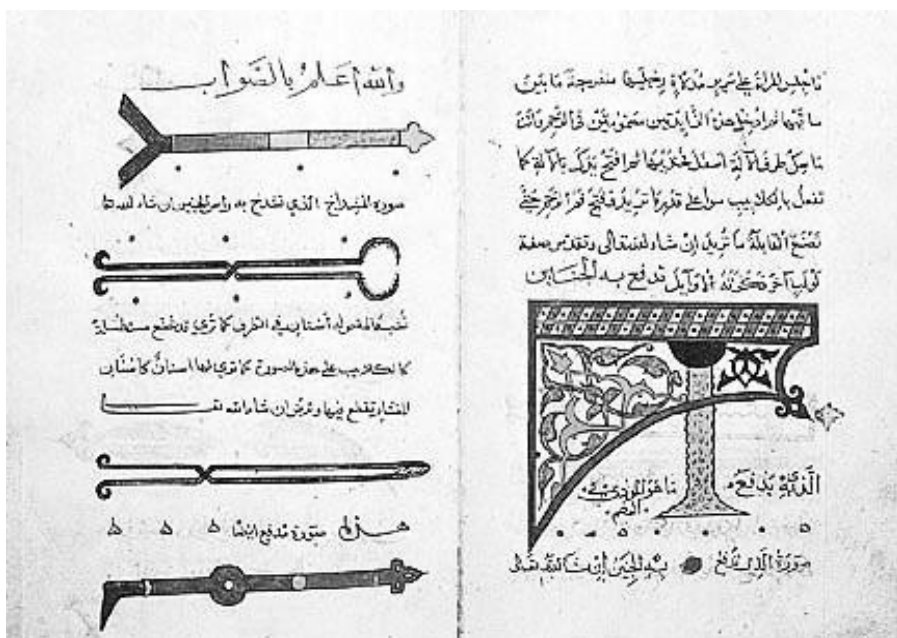 فاجلس المراة على سرير مدلاة رجليها منفرجة ما بين
ساقيها ثم ادخل هذه الزايدتين مضمومتين في الرحم وانت
ماسك طرف الالة اسفل فخذيها ثم افتح يدك بالالة كما
تفعل بالكلاليب سوا على قدر ما تريد فتح فم الرحم حتى
تصنع القابلة ما تريد ان شاء الله تعالى وتقدس صفة
لولب اخر ذكرته الاوايل تدفع به الجنين
يدفع
صورة الذي تدفع به الجنين ان شا الله تعالى
والله اعلم بالصواب
صورة المشداخ الذي تشدخ به راس الجنين ان شاء الله
المقص له اسنان في الطرف كما ترى وقد تصنع مستطيلة
كالكلاليب على هذه الصورة كما ترى لها اسنان كاسنان
المنشار يقطع بها ويرض ان شاء الله
صورة مدفع ايضا ه ه ه